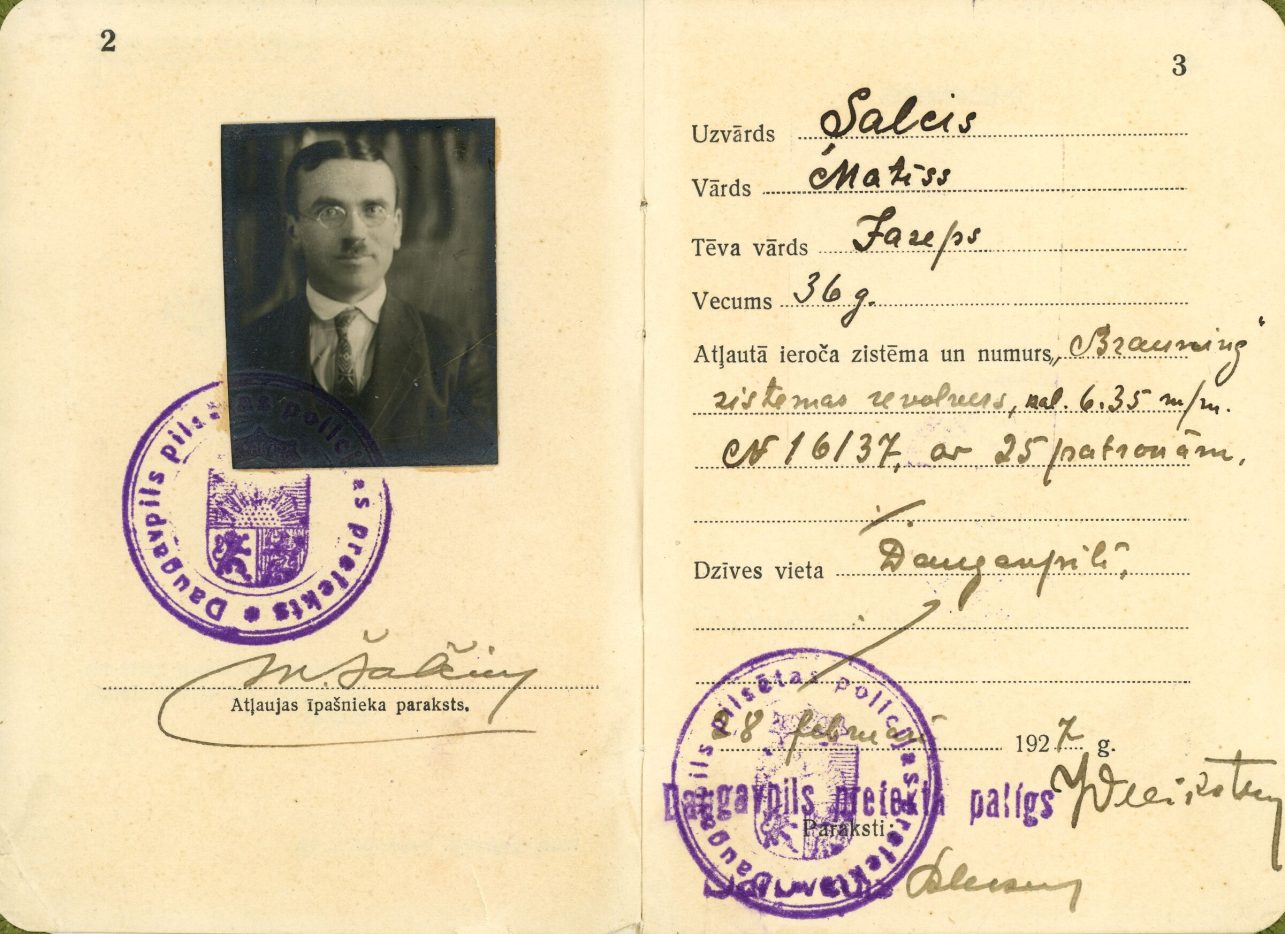 2
Daugavpils pilsētas policijas prefekts
M. Šalčius
Atļaujas īpašnieka paraksts.
3
Uzvārds Šalcis
Vārds Matiss
Tēva vārds Jazeps
Vecums 36 g.
Atļautā ieroča zistēma un numurs „Brauning“
zistemas revolvers, kal. 6.35 m/m.
N 16137, ar 25 patronām.
Dzīves vieta Daugavpilī,
28 februarī 1927 g.
Daugavpils pilsētas policijas prefekts
Daugavpils prefekta palīgs
Paraksti: